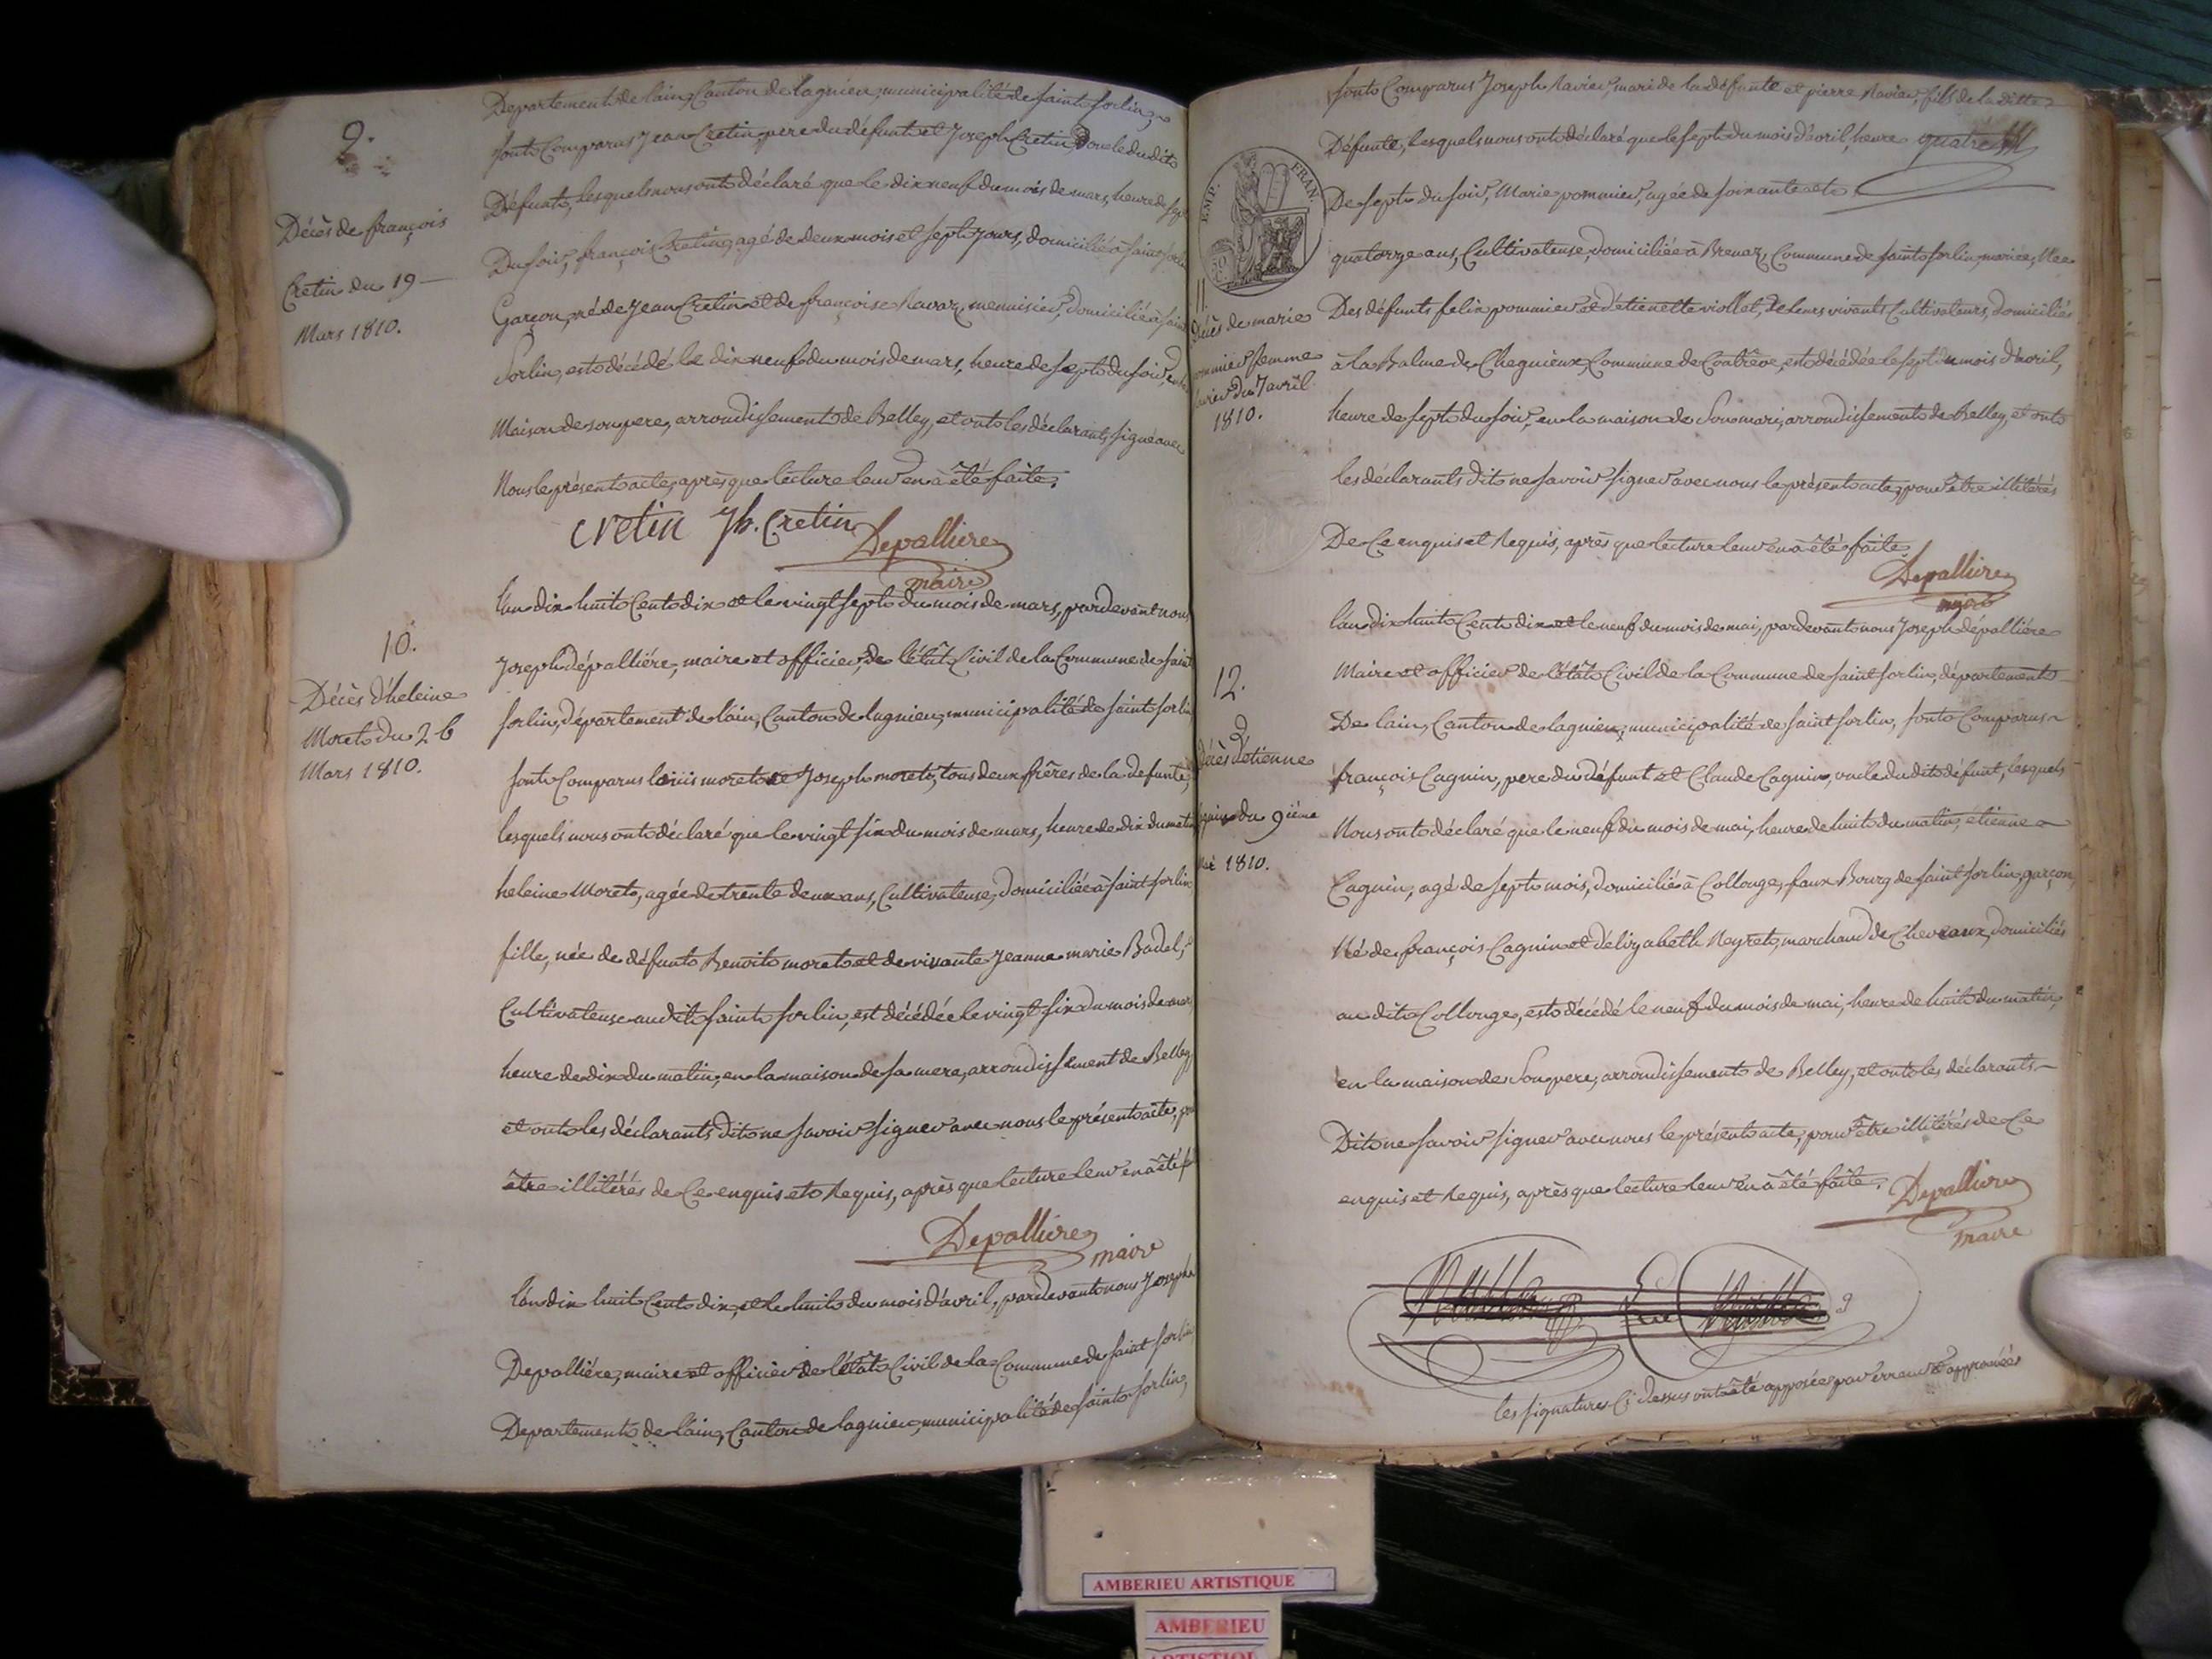 9.
Décès de françois
Cretin du 19
Mars 1810.
Departement de lain, Canton de lagnieu, municipalité de saint sorlin,
sont Comparus Jean Cretin, pere du défunt et Joseph Cretin, oncle du dit
Défunt, lesquels nous ont déclaré que le dix neuf du mois de mars, heure de sept
Du soir, françois Cretin, agé de deux mois et sept jours, domicilié à saint sorlin
Garçon, né de Jean Cretin et de françoise Ravaz, menuisier, domicilié à saint
Sorlin, est décédé le dix neuf du mois de mars, heure de sept du soir, en la
Maison de son pere, arrondissement de Belley, et ont les déclarants, signé avec
Nous le présent acte, après que lecture leur en à été faite.
Cretin Jh. Cretin Depalliere
maire
10.
Décès d'heleine
Moret du 26
Mars 1810.
l'an dix huit Cent dix et le vingt sept du mois de mars, pardevant nous
Joseph dépalliére, maire et officier de l'état Civil de la Commune de saint
sorlin, département de l'ain, Canton de lagnieu, municipalité de saint sorlin
sont Comparus louis moret et Joseph moret, tous deux frères de la defunte,
lesquels nous ont déclaré que le vingt six du mois de mars, heure de dix du mat
heleine Moret, agée de trente deux ans, Cultivateuse, domiciliée à saint sorlin
fille, née de défunt Benoit moret et de vivante Jeanne marie Badel,
Cultivateuse au dit saint sorlin, est décédée le vingt six du mois de mar
heure de dix du matin, en la maison de sa mere, arrondissement de Belley
et ont les déclarants dit ne savoir signer avec nous le présent acte, pour
être illitérés de Ce enquis et Requis, après que lecture leur en à été f
Depalliere
maire
l'an dix huit Cent dix, et le huit du mois d'avril, pardevant nous Joseph
Depalliére, maire et officier de l'état Civil de la Commune de saint sorlin
Departement de l'ain, Canton de lagnieu, municipalité de saint sorlin,
EMP. FRAN.
11.
Décès de marie
ommier femme
avier du 7 avril
1810.
sont Comparus Joseph Ravier, mari de la défunte et pierre Ravier, fils de la ditte
Défunte, lesquels nous ont déclaré que le sept du mois d'avril, heure quatre
De sept du soir, Marie pommier, agée de soixante et
quatorze ans, Cultivateuse, domiciliée à Brenaz, Commune de saint sorlin, mariée, Née
Des défunts felix pommier et d'étienette viollet, de leurs vivants Cultivateurs, domiciliés
à la Balme de Chegnieux, Commune de Contrève, est décédée le sept du mois d'avril,
heure de sept du soir, en la maison de Son mari, arrondissement de Belley, et ont
les déclarants dit ne savoir signer avec nous le présent acte, pour être illitérés
De Ce enquis et Requis, après que lecture leur en à été faite.
Depalliere
maire
12.
Décès d'étienne
agnin du 9ième
Mai 1810.
l'an dix huit Cent dix et le neuf du mois de mai, pardevant nous Joseph dépalliére
Maire et officier de l'état Civil de la Commune de saint sorlin, département
De lain, Canton de lagnieu, municipalité de saint sorlin, sont Comparus
françois Cagnin, pere du défunt et Claude Cagnin, oncle du dit défunt, lesquels
Nous ont déclaré que le neuf du mois de mai, heure de huit du matin, étienne
Cagnin, agé de sept mois, domicilié à Collonge, faux Bourg de saint sorlin, garçon,
Né de françois Cagnin et d'élizabeth Neyret, marchand de Chevaux, domiciliés
au dit Collonge, est décédé le neuf du mois de mai, heure de huit du matin,
en la maison de Son pere, arrondissement de Belley, et ont les déclarants
Dit ne savoir signer avec nous le présent acte, pour être illitérés de Ce
enquis et Requis, après que lecture leur en à été faite. Depalliere
maire
les signatures Ci dessus ont été apposées par erreur et approuvées
AMBERIEU ARTISTIQUE
AMBERIEU
ARTISTIQUE